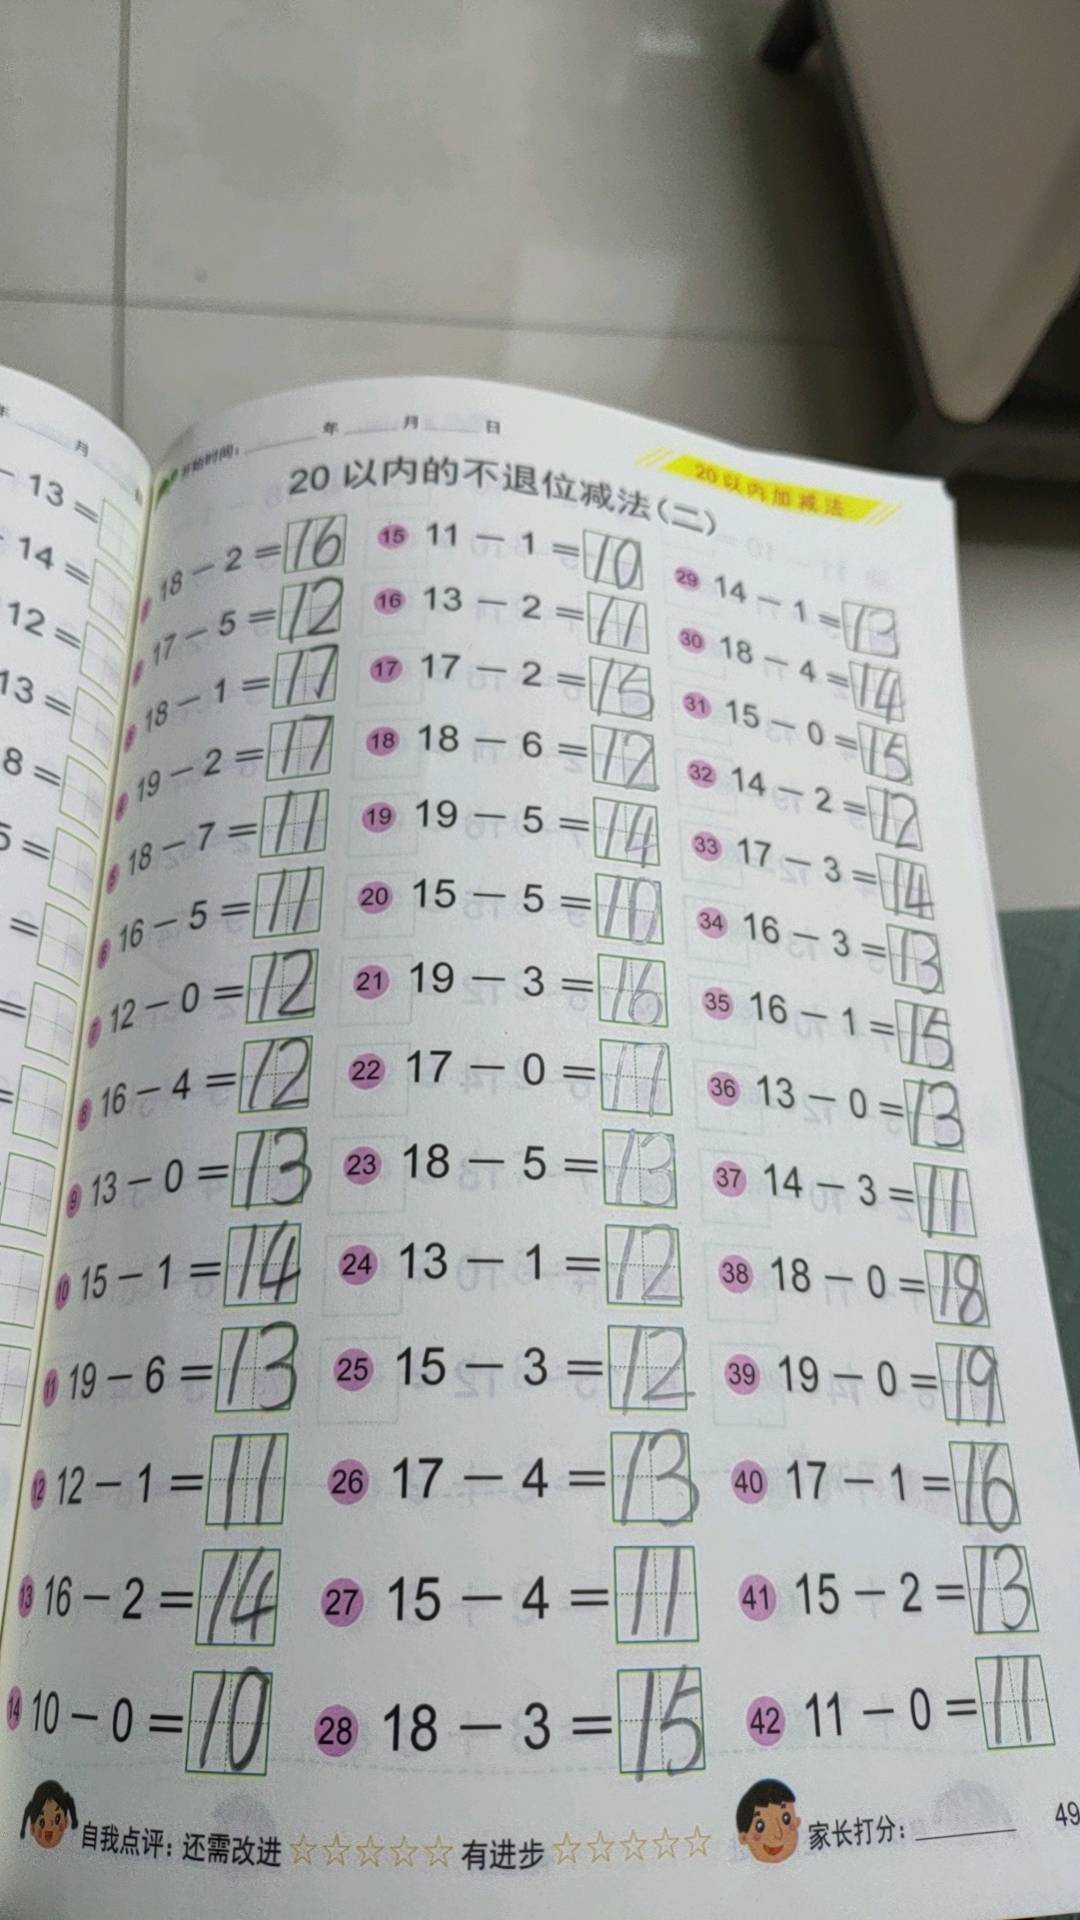 年 月
- 13 =
- 14 =
12 =
13 =
8 =
5 =
=
=
=
开始时间: 年 月 日
20以内加减法
20 以内的不退位减法(二)
1 18 - 2 = 16
2 17 - 5 = 12
3 18 - 1 = 17
4 19 - 2 = 17
5 18 - 7 = 11
6 16 - 5 = 11
7 12 - 0 = 12
8 16 - 4 = 12
9 13 - 0 = 13
10 15 - 1 = 14
11 19 - 6 = 13
12 12 - 1 = 11
13 16 - 2 = 14
14 10 - 0 = 10
15 11 - 1 = 10
16 13 - 2 = 11
17 17 - 2 = 15
18 18 - 6 = 12
19 19 - 5 = 14
20 15 - 5 = 10
21 19 - 3 = 16
22 17 - 0 = 11
23 18 - 5 = 13
24 13 - 1 = 12
25 15 - 3 = 12
26 17 - 4 = 13
27 15 - 4 = 11
28 18 - 3 = 15
29 14 - 1 = 13
30 18 - 4 = 14
31 15 - 0 = 15
32 14 - 2 = 12
33 17 - 3 = 14
34 16 - 3 = 13
35 16 - 1 = 15
36 13 - 0 = 13
37 14 - 3 = 11
38 18 - 0 = 18
39 19 - 0 = 19
40 17 - 1 = 16
41 15 - 2 = 13
42 11 - 0 = 11
自我点评: 还需改进 ☆☆☆☆☆ 有进步 ☆☆☆☆☆ 家长打分:
49